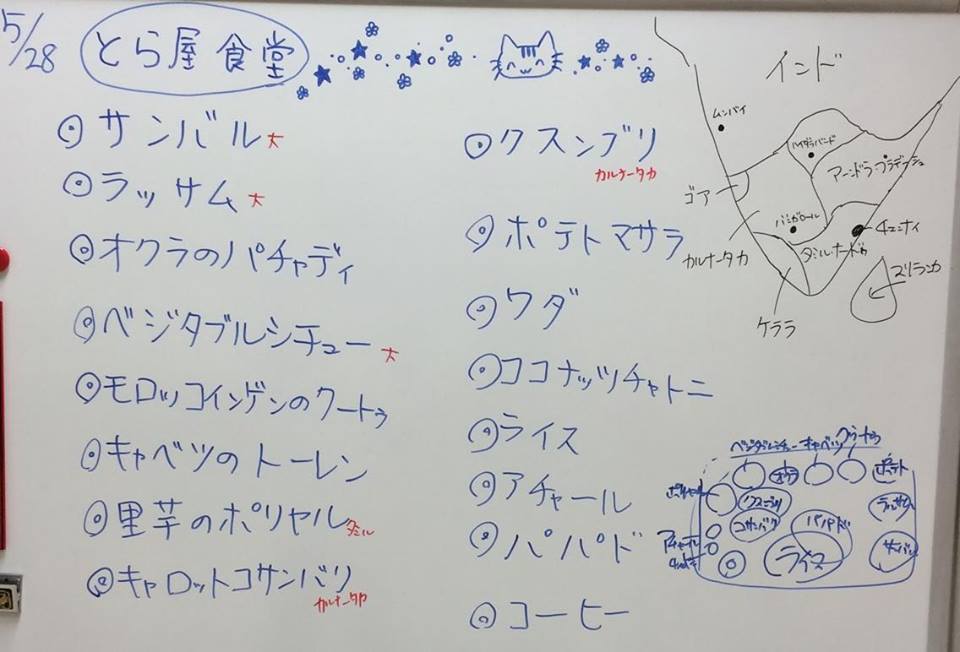 5/28
とら屋食堂
サンバル 大
ラッサム 大
オクラのパチャディ
ベジタブルシチュー 大
モロッコインゲンのクートゥ
キャベツのトーレン
里芋のポリヤル タミル
キャロットコサンバリ
カルナータカ
クスンブリ
カルケータカ
ポテトマサラ
ワダ
ココナッツチャトニ
ライス
アチャール
パパド
コーヒー
インド
ムンバイ
ハイダラバード
アーンドラ・プラデーシュ
ゴア
バンガロール
チェンナイ
カルナータカ
タミル・ナードゥ
スリランカ
ケララ
ベジタブルシチュー キャベツ クートゥ
オクラ
ポテト
ポリヤル
クスンブリ
ラッサム
コサンバリ
パパド
アチャール
ライス
サンバル